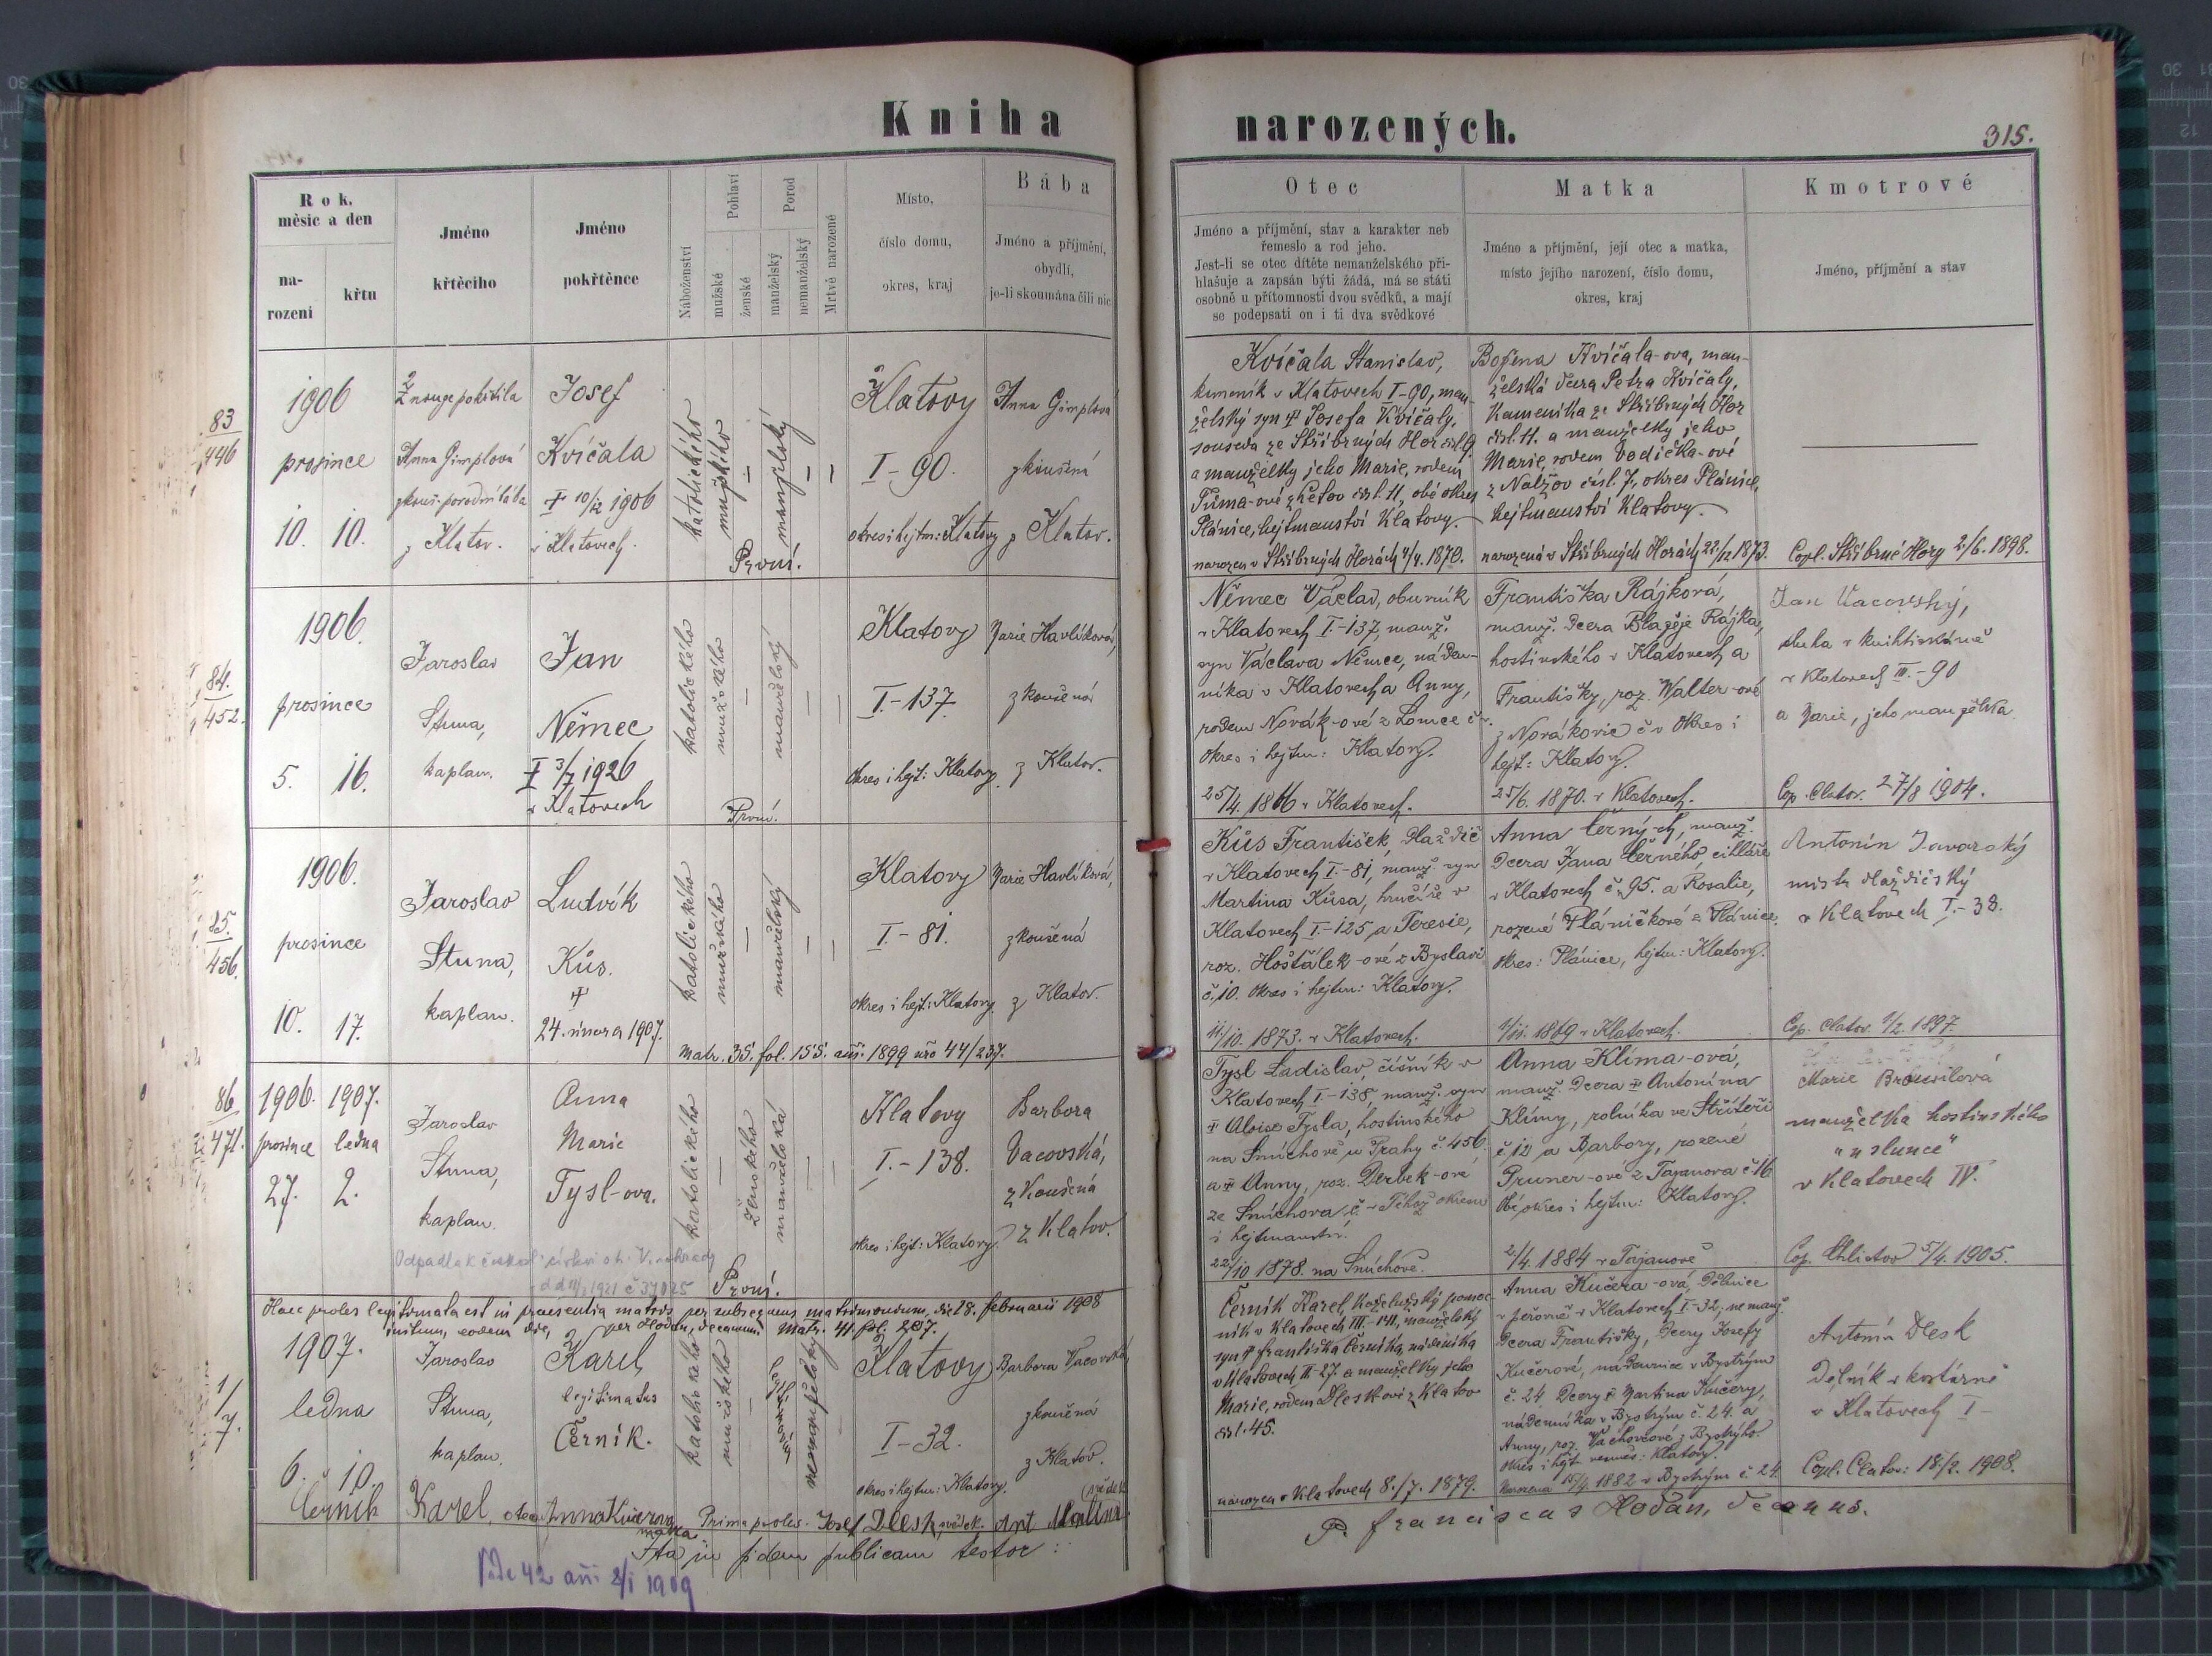 Kniha narozených.
315.
Rok, měsíc a den
narození
křtu
Jméno křtěcího
Jméno pokřtěnce
Náboženství
Pohlaví
mužské
ženské
Porod
manželský
nemanželský
Mrtvě narozené
Místo,
číslo domu,
okres, kraj
Bába
Jméno a příjmění,
obydlí,
je-li zkoumána čili nic
Otec
Jméno a příjmění, stav a karakter neb
řemeslo a rod jeho.
Jest-li se otec dítěte nemanželského při-
hlašuje a zapsán býti žádá, má se státi
osobně u přítomnosti dvou svědků, a mají
se podepsati on i ti dva svědkové
Matka
Jméno a příjmění, její otec a matka,
místo jejího narození, číslo domu,
okres, kraj
Kmotrové
Jméno, příjmění a stav
83
446
1906
prosince
10. 10.
Z nouze pokřtila
Anna Gimplová
zkouš. porodní bába
z Klatov.
Josef
Kvíčala
† 10/12 1906
v Klatovech.
katolického
mužského
manželský
První.
Klatovy
I-90.
okres i hejtm: Klatovy
Anna Gimplová
zkoušená
z Klatov.
Kvíčala Stanislav,
kameník v Klatovech I-90, man-
želský syn † Josefa Kvíčaly,
souseda ze Stříbrných Hor
a manželky jeho Marie, rodem
Tůma-ové z čísl. 11, obé okres
Plánice, hejtmanství Klatovy.
narozen v Stříbrných Horách 4/4. 1870.
Božena Kvíčala-ova, man-
želská dcera Petra Kvíčaly,
kameníka ze Stříbrných Hor
čísl. 11. a manželky jeho
Marie, rodem Vodička-ové
z Nalžov čísl. 7, okres Plánice,
hejtmanství Klatovy.
narozená v Stříbrných Horách 22/12 1873.
Copl. Stříbrné Hory 2/6. 1898.
84.
452.
1906.
prosince
5. 16.
Jaroslav
Stuna,
kaplan.
Jan
Němec
† 3/7 1926
v Klatovech
katolického
mužského
manželský
První.
Klatovy
I.-137.
okres i hejt: Klatovy.
Marie Havlíková,
zkoušená
z Klatov.
Němec Václav, obuvník
v Klatovech I.-137, manž.
syn Václava Němce, náden-
níka v Klatovech a Anny,
rodem Novák-ové z Lomce č
okres i hejtm: Klatovy.
25/4. 1866 v Klatovech.
Františka Rájková,
manž. dcera Blažeje Rájka,
hostinského v Klatovech a
Františky, roz. Walter-ové
z Novákovic č v okres i
hejt: Klatovy.
25/6. 1870. v Klatovech.
Jan Vacovský,
sluha v knihtiskárně
v Klatovech III.-90
a Marie, jeho manželka.
Cop. Clatov. 27/8 1904.
85.
456.
1906.
prosince
10. 17.
Jaroslav
Stuna,
kaplan.
Ludvík
Kůs.
†
24. února 1907.
katolického
mužského
manželský
Matr. 35. fol. 155. ann. 1899 nro 44/237.
Klatovy
I.-81.
okres i hejt: Klatovy.
Marie Havlíková,
zkoušená
z Klatov.
Kůs František, dlaždič
v Klatovech I.-81, manž. syn
Martina Kůsa, hrnčíře v
Klatovech I.-125 a Teresie,
roz. Hoštálek-ové z Byslavi
č. 10. okres i hejtm: Klatovy.
11/10. 1873. v Klatovech.
Anna Černých, manž.
dcera Jana Černého, cihláře
v Klatovech č. 95. a Rosalie,
rozené Pláničkové z Plánice
okres: Plánice, hejtm: Klatovy.
1/11. 1869 v Klatovech.
Antonín Javorský
mistr dlaždičský
v Klatovech I.-38.
Cop. Clatov. 1/2. 1897.
86
471.
1906. 1907.
prosince ledna
27. 2.
Jaroslav
Stuna,
kaplan.
Anna
Marie
Tysl-ova.
Odpadla k českosl. církvi Vinohrady
1921 č 37025
katolického
ženského
manželská
První.
Klatovy
I.-138.
okres i hejt: Klatovy.
Barbora
Vacovská,
zkoušená
z Klatov.
Tysl Ladislav, číšník v
Klatovech I.-138, manž. syn
† Aloise Tysla, hostinského
na Smíchově u Prahy č. 456
a † Anny, roz. Derbek-ové
ze Smíchova č. v Téhož okresu
i hejtmanství.
22/10 1878. na Smíchově.
Anna Klíma-ová,
manž. dcera † Antonína
Klímy, rolníka ve Střítěři
č. 12 a Barbory, rozené
Pruner-ové z Tajanova č. 16
Obé okres i hejtm: Klatovy.
2/4. 1884 v Tajanově
Marie Brousilová
manželka hostinského
"u slunce"
v Klatovech IV.
Cop. Chlistov 5/4. 1905.
Haec proles legitimata est in praesentia matris per subsequens matrimonium, die 18. februarii 1908
initum, eodem die, per Hodan, decanum. Matr. 41. fol. 207.
1/
7.
1907.
ledna
6. 10.
Jaroslav
Stuna,
kaplan.
Karel
legitimatus
Černík.
katolického
mužského
nemanželský
Klatovy
I-32.
okres i hejtm: Klatovy.
Barbora Vacovská
zkoušená
z Klatov.
Černík Karel, koželužský pomoc-
ník v Klatovech III.-141, manželský
syn † Františka Černíka, nádeníka
v Klatovech III-27. a manželky jeho
Marie, rodem Dleskové z Klatov
čsl. 45.
narozen v Klatovech 8./7. 1879.
Anna Kučera-ová, dělnice
v peřovně v Klatovech I.-32; nemanž.
dcera Františky, dcery Josefy
Kučerové, nádennice v Bystrým
č. 24 dcery † Martina Kučery,
nádenníka v Bystrým č. 24. a
Anny, roz. Váchovcové z Bystrýho.
okres i hejt. vesměs: Klatovy.
narozená 15/4. 1882 v Bystrým č. 24.
Antonín Dlesk
dělník v kartáčně
v Klatovech I-
Copl. Clatov: 18./2. 1908.
Černík Karel, otec Anna Kučerova matka Prima proles. Josef Dlesk svědek. Ant Mallina svědek
Ita in fidem publicam testor:
P. Franciscus Hodan, decanus.
42 ann. 2/I 1909